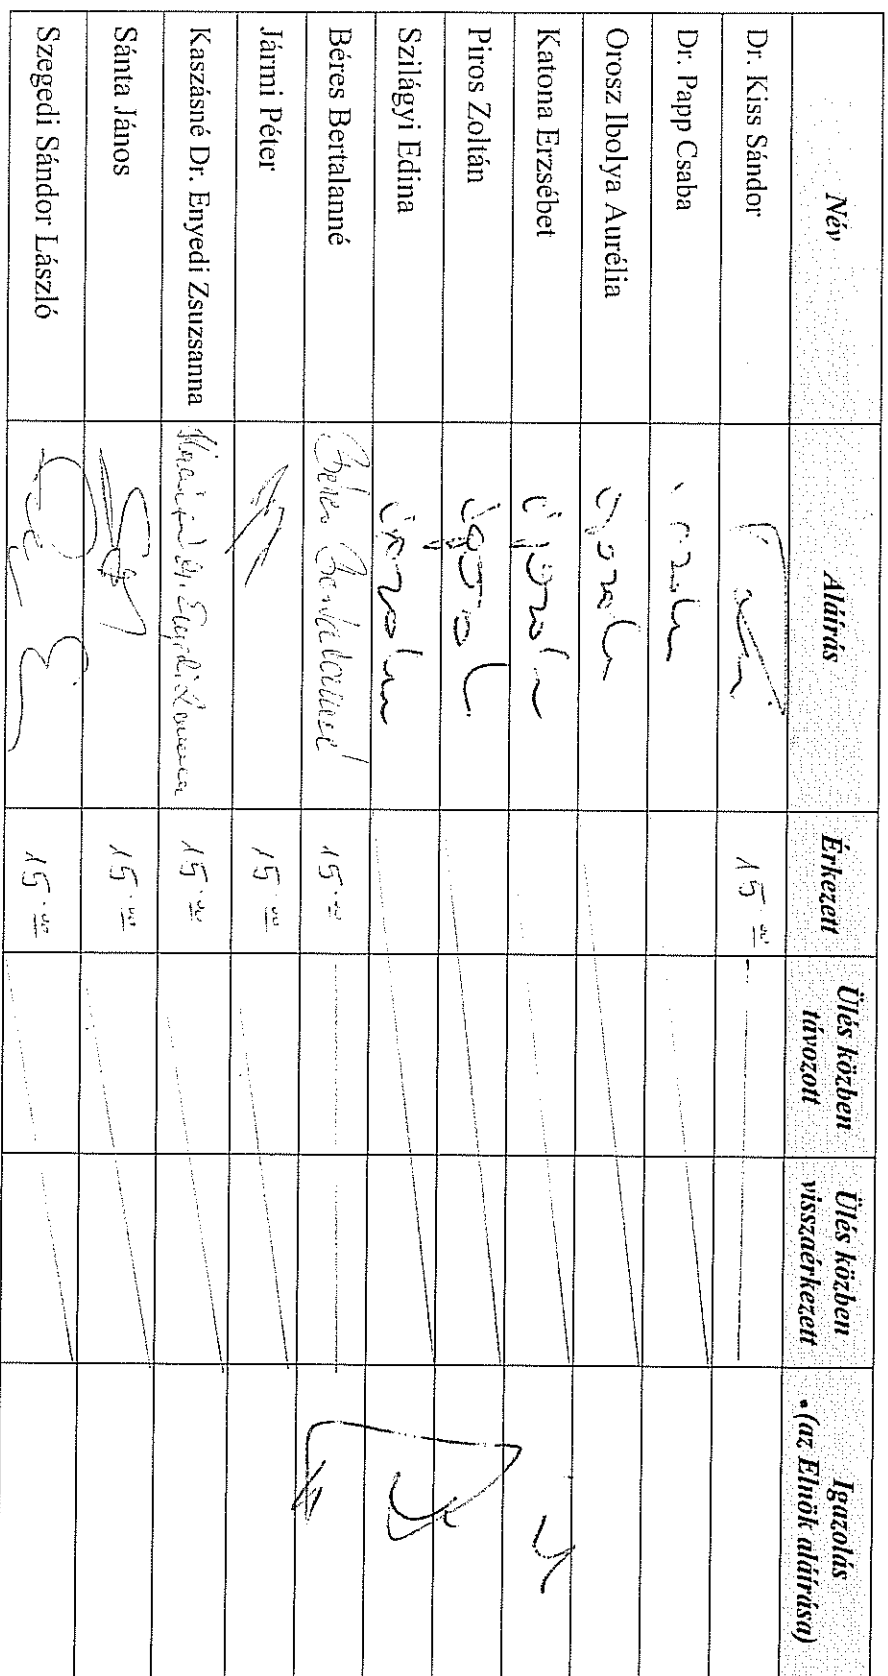 Név Aláírás Érkezett Ülés közben távozott Ülés közben visszaérkezett Igazolás (az Elnök aláírása)
Dr. Kiss Sándor 15.00
Dr. Papp Csaba
Orosz Ibolya Aurélia
Katona Erzsébet
Piros Zoltán
Szilágyi Edina
Béres Bertalanné Béres Bertalanné 15.00
Jármi Péter 15.00
Kaszásné Dr. Enyedi Zsuzsanna 15.00
Sánta János 15.00
Szegedi Sándor László 15.00